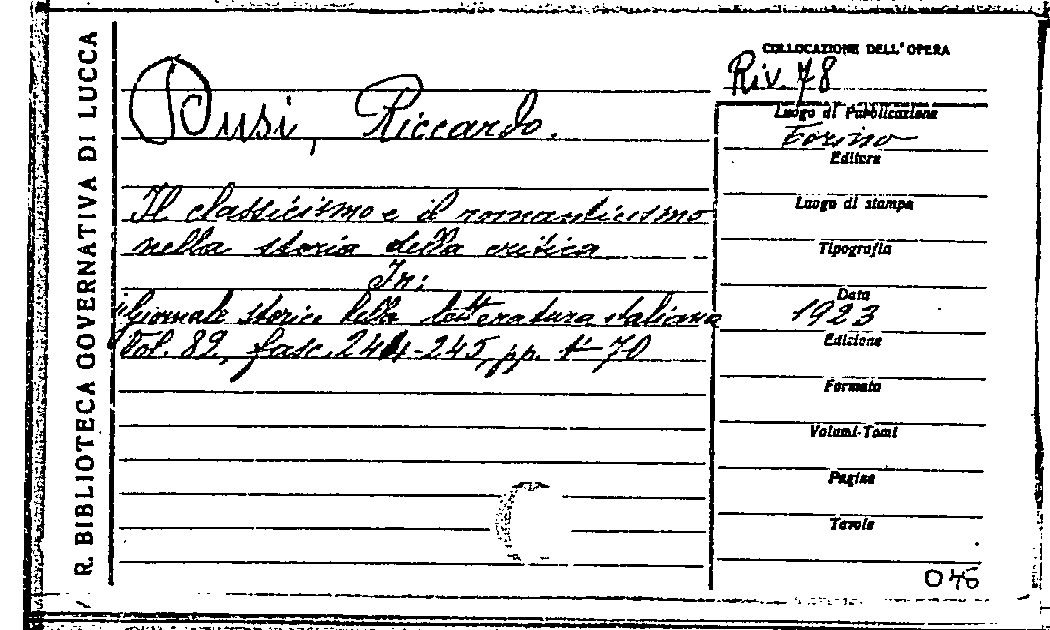 R. BIBLIOTECA GOVERNATIVA DI LUCCA
Dusi, Riccardo.
Il classicismo e il romanticismo
nella storia della critica
In:
Giornale storico della letteratura italiana
Vol. 82, fasc. 244-245, pp. 1-70
COLLOCAZIONE DELL'OPERA
Riv. 78
Luogo di Pubblicazione
Torino
Editore
Luogo di stampa
Tipografia
Data
1923
Edizione
Formato
Volumi-Tomi
Pagine
Tavole